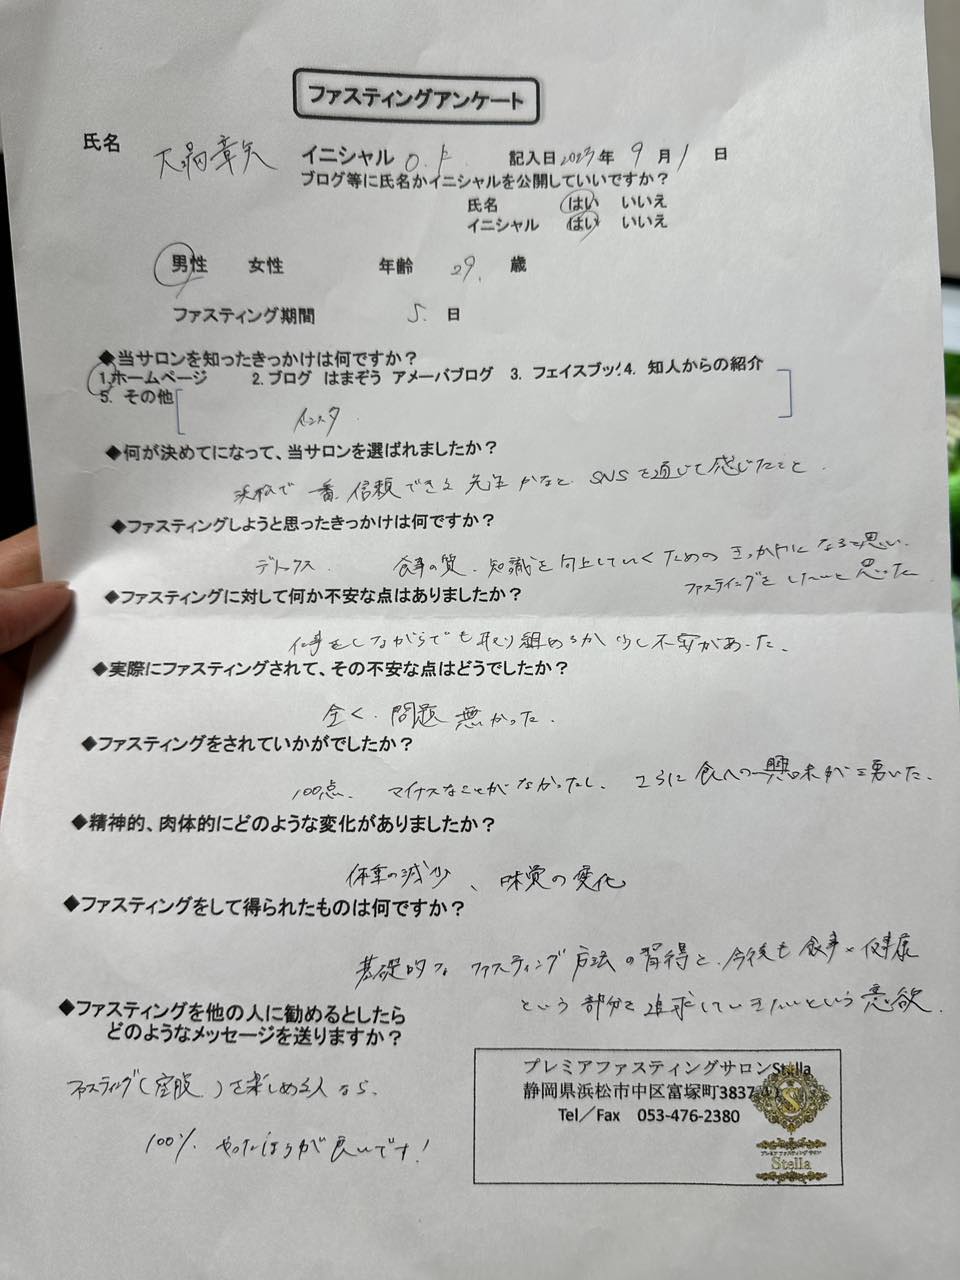 ファスティングアンケート
氏名 イニシャル O. 記入日 2023年 9月 1日
ブログ等に氏名かイニシャルを公開していいですか？
氏名 はい いいえ
イニシャル はい いいえ
男性 女性 年齢 29. 歳
ファスティング期間 5. 日
◆当サロンを知ったきっかけは何ですか？
1.ホームページ 2.ブログ はまぞう アメーバブログ 3. フェイスブック 4. 知人からの紹介
5. その他
インスタ
◆何が決めてになって、当サロンを選ばれましたか？
浜松で一番信頼できる先生かなと SNSを通じて感じたこと.
◆ファスティングしようと思ったきっかけは何ですか？
デトックス. 食事の質、知識を向上していくためのきっかけになると思い.
ファスティングをしたいと思った
◆ファスティングに対して何か不安な点はありましたか？
仕事をしながらでも取り組めるか少し不安があった.
◆実際にファスティングされて、その不安な点はどうでしたか？
全く、問題無かった.
◆ファスティングをされていかがでしたか？
100点. マイナスなことがなかったし、さらに食への興味が湧いた.
◆精神的、肉体的にどのような変化がありましたか？
体重の減少、味覚の変化
◆ファスティングをして得られたものは何ですか？
基礎的なファスティング方法の習得と、今後も食事×健康
という部分を追求していきたいという意欲.
◆ファスティングを他の人に勧めるとしたら
どのようなメッセージを送りますか？
ファスティング(空腹)を楽しめる人なら、
100% やったほうが良いです!
プレミアファスティングサロンStella
静岡県浜松市中区富塚町3837-41
Tel／Fax 053-476-2380
S
プレミアファスティングサロン
Stella